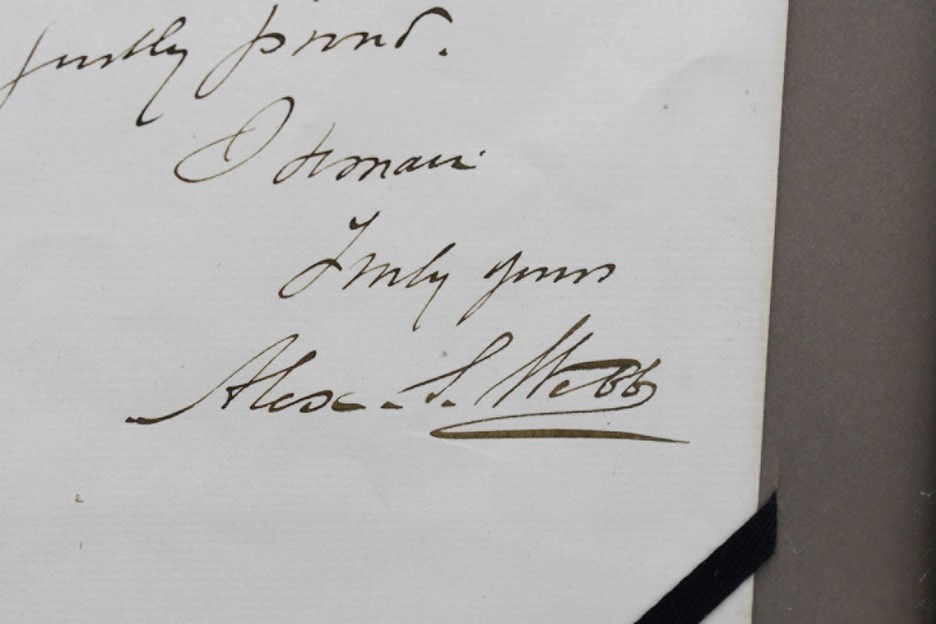 justly proud.
I remain
Truly yours
Alex. S. Webb